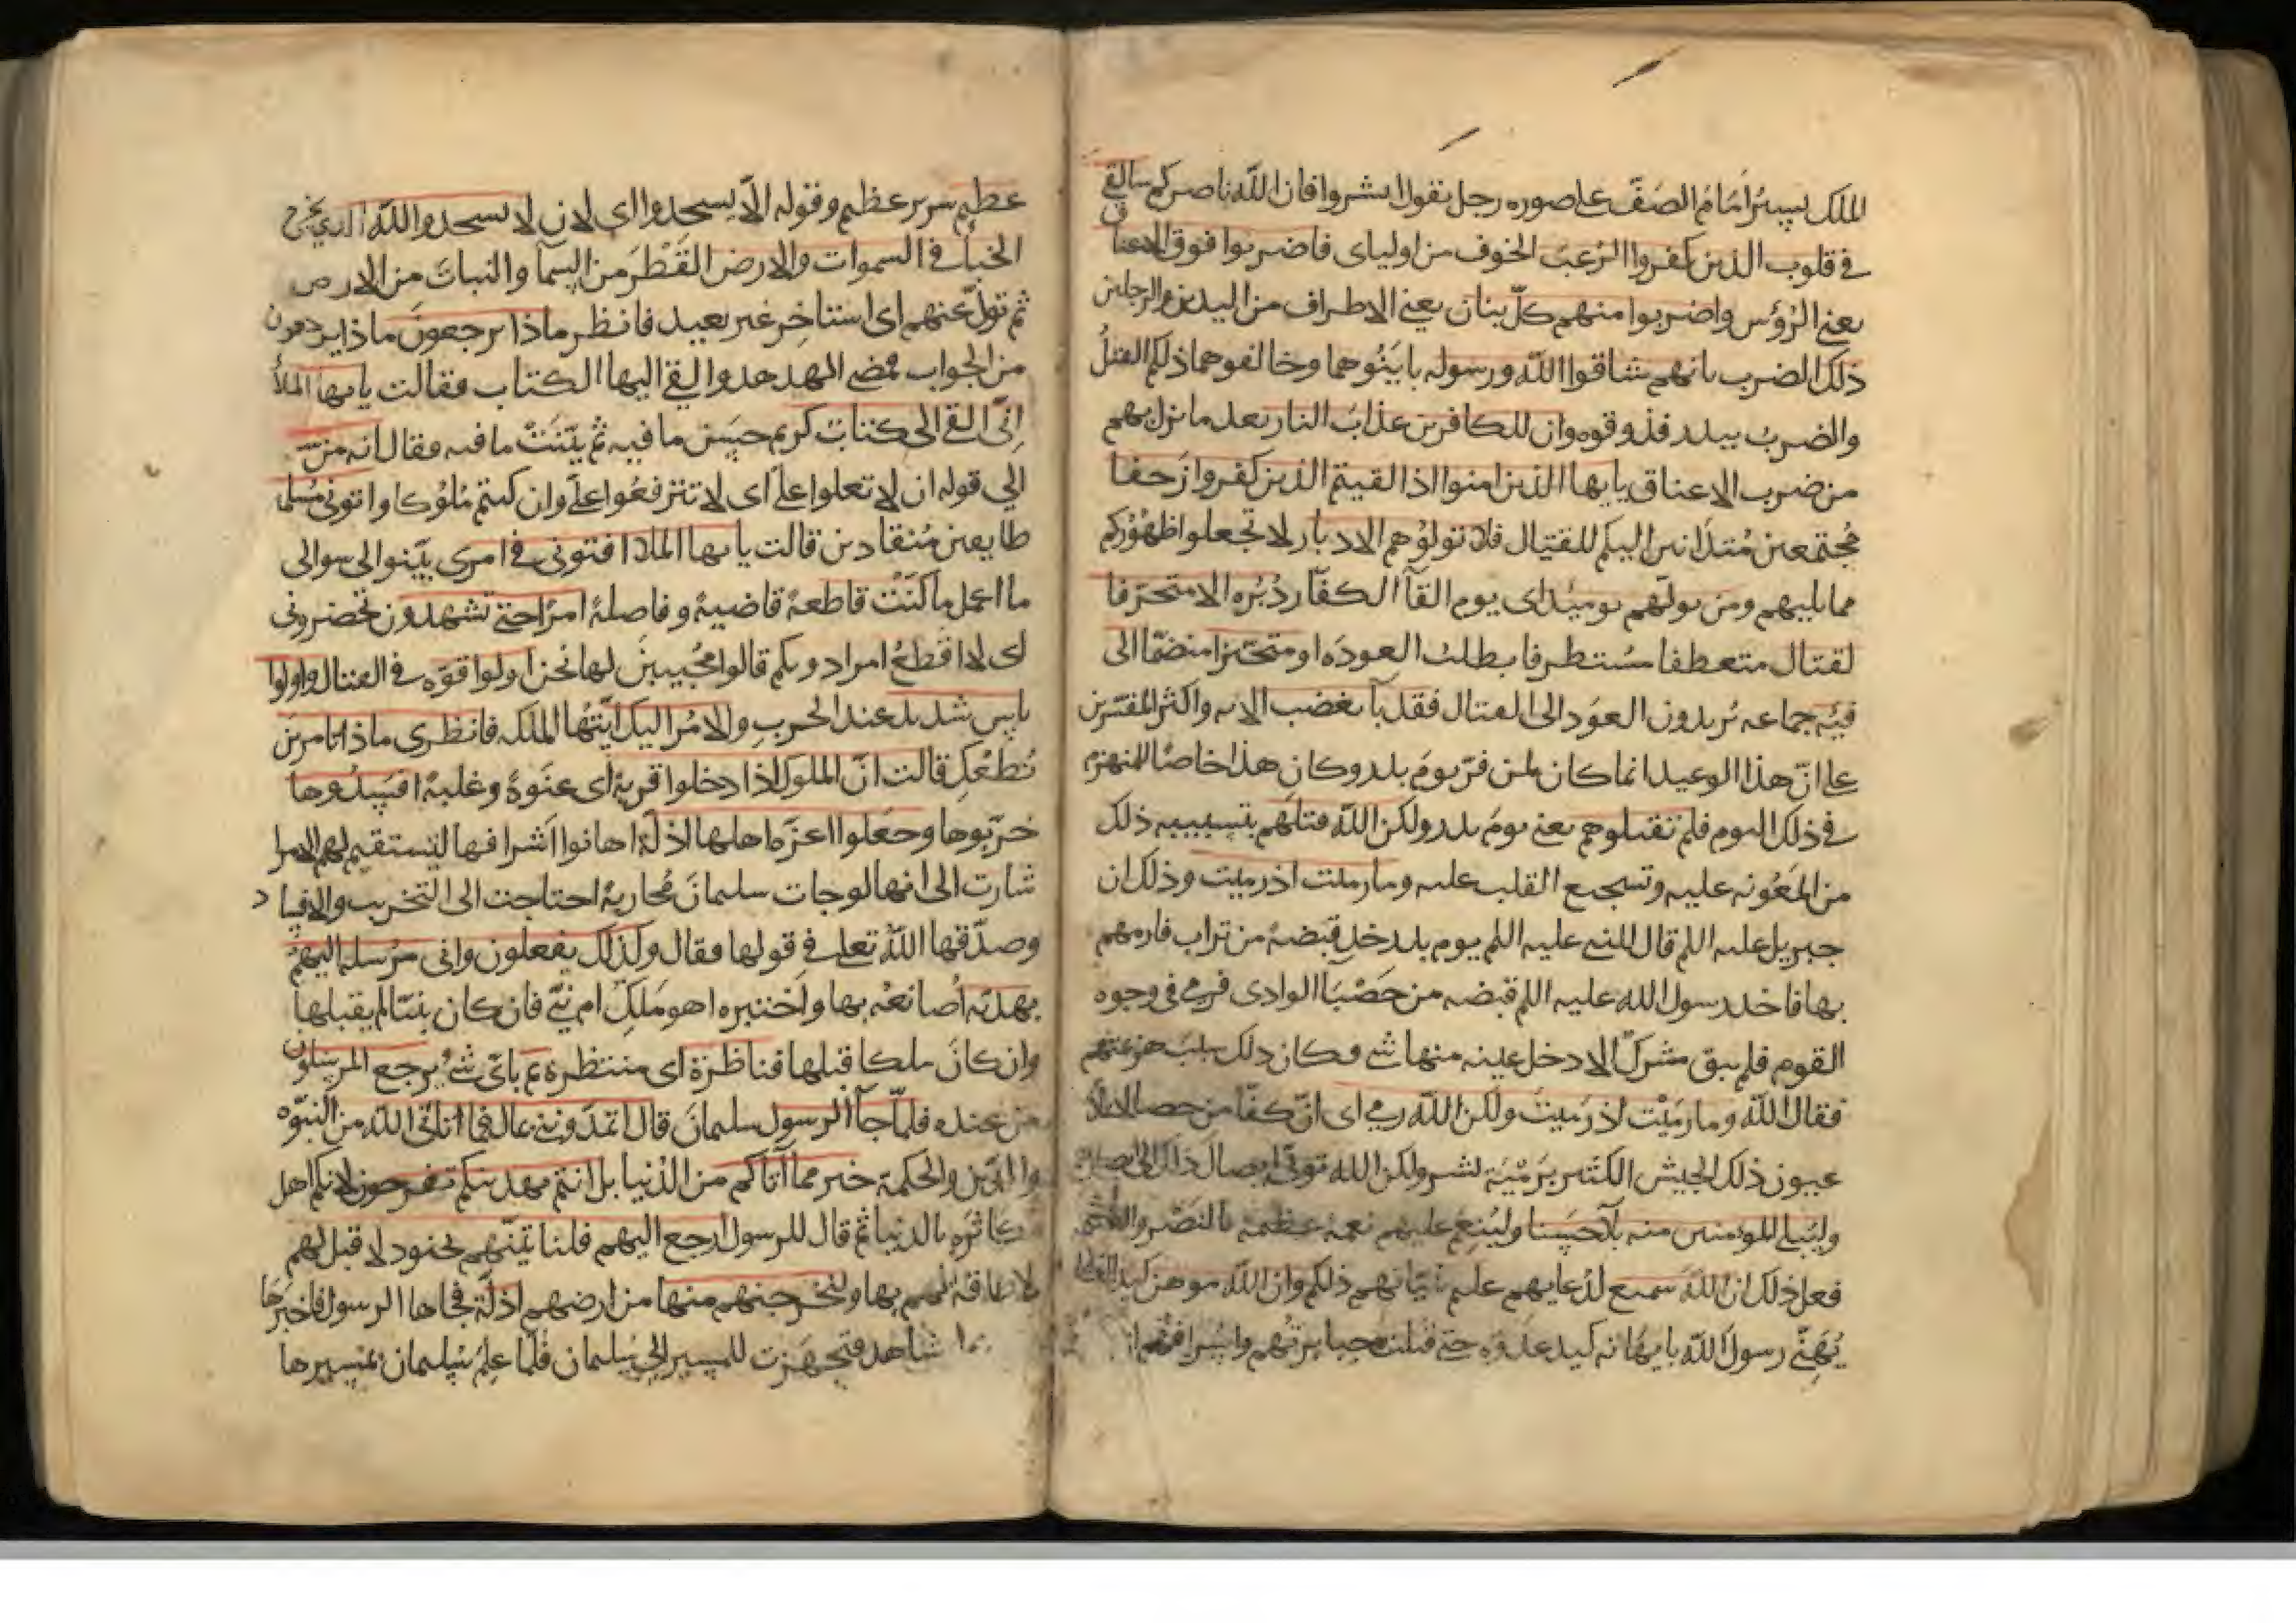 الملك يسير أمام الصف على صوره رجل يقول ابشروا فان الله ناصركم سالقى
فى قلوب الذين كفروا الرعب الخوف من اوليائى فاضربوا فوق الاعناق
يعنى الرؤس واضربوا منهم كل بنان يعنى الاطراف من اليدين والرجلين
ذلك الضرب بانهم شاقوا الله ورسوله باينوهما وخالفوهما ذلكم القتل
والضرب ببدر فذوقوه وان للكافرين عذاب النار بعد ما نزل بهم
من ضرب الاعناق يايها الذين امنوا اذا لقيتم الذين كفروا زحفا
مجتمعين متدانين اليكم للقتال فلا تولوهم الادبار لا تجعلوا ظهوركم
مما يليهم ومن يولهم يوميذ اى يوم القآ الكفار دبره الا متحرفا
لقتال متعطفا مستطرفا يطلب العوده او متحيزا منضما الى
فيه جماعه يريدون العود الى القتال فقد بآ بغضب الايه واكثر المفسرين
على ان هذا الوعيد انما كان لمن فر يوم بدر وكان هذا خاصا للمنهزم
فى ذلك اليوم فلم تقتلوهم يعنى يوم بدر ولكن الله قتلهم بتسبيبه ذلك
من المعونه عليه وتسجيع القلب عليه وما رميت اذ رميت وذلك ان
جبريل عليه اللم قال للنبى عليه اللم يوم بدر خذ قبضة من تراب فارمهم
بها فاخذ رسول الله عليه اللم قبضه من حصبآ الوادى فرمى فى وجوه
القوم فلم يبق مشرك الا دخل عينه منها شى وكان ذلك سبب هزيمتهم
فقال الله وما رميت اذ رميت ولكن الله رمى اى ان كفا من حصا لا يملأ
عيون ذلك الجيش الكثير برمية بشر ولكن الله تولى ايصال ذلك الى ابصارهم
وليبلى المومنين منه بلآ حسنا ولينعم عليهم نعمة عظيمة بالنصر والغنيمة
فعل ذلك ان الله سميع لدعايهم عليم بنياتهم ذلكم وان الله موهن كيد
يهنى رسول الله بايهانه كيد عدوه حتى قتلت جبابرتهم واسر اشرافهم
عظيم سرير عظيم وقوله الا يسجدوا اى لان لا يسجدوا لله الذى يخرج
الخبأ فى السموات والارض القطر من السمآ والنبات من الارض
ثم تول عنهم اى استاخر غير بعيد فانظر ماذا يرجعون ماذا يردون
من الجواب فمضى الهدهد والقى اليها الكتاب فقالت يايها الملأ
انى القى الى كتاب كريم حسن ما فيه ثم بينت ما فيه فقال انه من
الى قوله ان لا تعلوا على اى لا تترفعوا على وان كنتم ملوكا واتونى مسلما
طايعين منقادين قالت يايها الملا افتونى فى امرى بينوا لى سوالى
ما اعمل ما كنت قاطعة قاضية وفاصلة امرا حتى تشهدون تحضرونى
اى لا اقطع امرا دونكم قالوا مجيبين لها نحن اولوا قوه فى القتال واولوا
باس شديد عند الحرب والامر اليك ايتها الملكه فانظرى ماذا تامرين
نطعك قالت ان الملوك اذا دخلوا قرية اى عنوة وغلبة افسدوها
خربوها وجعلوا اعزة اهلها اذلة اهانوا اشرافها لتستقيم لهم الامرا
شارت الى انها لو جات سليمان محاربة احتاجت الى التخريب والافساد
وصدقها الله تعلى فى قولها فقال وكذلك يفعلون وانى مرسلة اليهم
بهدية اصانعه بها واختبره اهو ملك ام نبى فان كان نبيا لم يقبلها
وان كان ملكا قبلها فناظرة اى منتظرة بم باى شى يرجع المرسلون
من عنده فلما جآ الرسول سليمان قال اتمدوننى بمال فما اتانى الله من النبوه
والدين والحكمة خير مما آتاكم من الدنيا بل انتم بهديتكم تفرحون لانكم اهل
مكاثره بالدنيا ثم قال للرسول ارجع اليهم فلناتينهم بجنود لا قبل لهم
لا طاقة لهم بها ولنخرجنهم منها من ارضهم اذلة فجاها الرسول فاخبرها
شاهد فتجهزت للمسير الى سليمان فلما علم سليمان بمسيرها